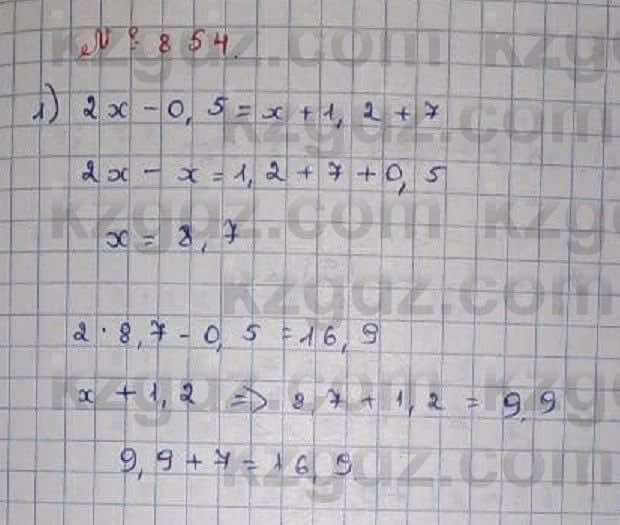 № 854.
1) 2x - 0,5 = x + 1,2 + 7
2x - x = 1,2 + 7 + 0,5
x = 8,7
2 · 8,7 - 0,5 = 16,9
x + 1,2 => 8,7 + 1,2 = 9,9
9,9 + 7 = 16,9
kzgdz.com
kzgdz.com
kzgdz.com
kzgdz.com
kzgdz.com
kzgdz.com